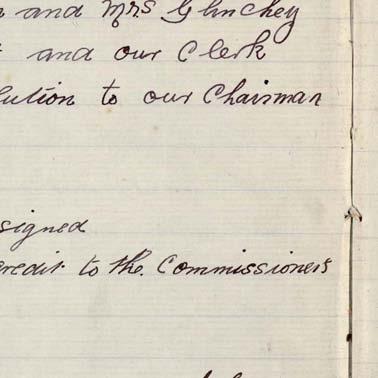 and Mrs Glinchey
and our Clerk
lution to our Chairman
signed
credit to the Commissioners